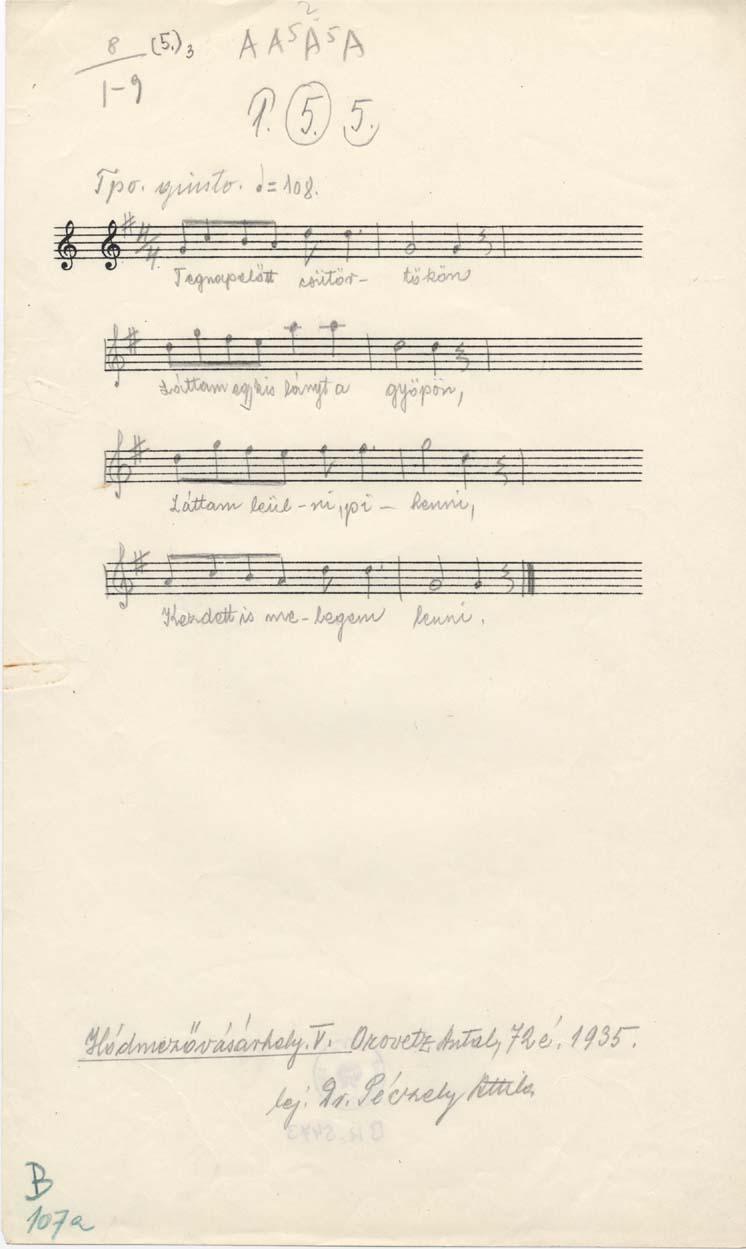 8 (5.) 3 A A⁵ A⁵ A
2
1-9
1. 5. 5.
Tpo. giusto. ♩=108.
4/4
Tegnapelőtt csütör- tökön
Láttam egy kis lányt a gyöpön,
Láttam leül-ni, pi- henni,
Kezdett is me-legem lenni.
Hódmezővásárhely. V. Orovetz Antal, 72 é. 1935.
lej: Dr. Péczely Attila
B
107a